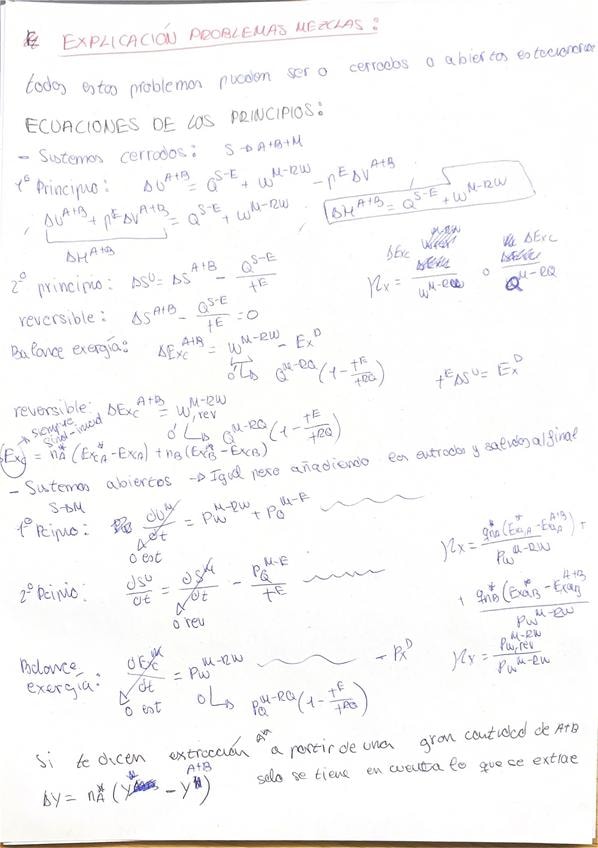 EXPLICACIÓN PROBLEMAS MEZCLAS:
todos estos problemas pueden ser o cerrados o abiertos estacionarios
ECUACIONES DE LOS PRINCIPIOS:
- Sistemas cerrados: S→A+B+M
1º Principio: ΔU^A+B = Q^S-E + W^M-RW - p^E ΔV^A+B
ΔU^A+B + p^E ΔV^A+B = Q^S-E + W^M-RW ; ΔH^A+B = Q^S-E + W^M-RW
ΔH^A+B
2º principio: ΔS^U = ΔS^A+B - Q^S-E / T^E
η_x = ΔExc / W^M-RW o ΔExc / Q^M-RQ
reversible: ΔS^A+B - Q^S-E / T^E = 0
Balance exergía: ΔExc^A+B = W^M-RW - Ex^D
o ↳ Q^M-RQ (1 - T^E / T^RQ)
T^E ΔS^U = Ex^D
reversible: ΔExc^A+B = W,rev^M-RW
o ↳ Q^M-RQ (1 - T^E / T^RQ)
siempre
Exc = nA* (ExA* - ExA) + nB (ExB* - ExB)
- Sistemas abiertos → Igual pero añadiendo las entradas y salidas al final
S→M
1º Pcipio: dU^M / dt = Pw^M-RW + PQ^M-E
0 est
2º Pcipio: dS^U / dt = dS^M / dt - PQ^M-E / T^E
0 rev
Balance exergía: dExc^M / dt = Pw^M-RW - Px^D
0 est
o ↳ PQ^M-RQ (1 - T^E / T^RQ)
η_x = Pw,rev^M-RW / Pw^M-RW
Si te dicen extracción a partir de una gran cantidad de A+B
solo se tiene en cuenta lo que se extrae
ΔY = nA* (Y* - Y^A+B)